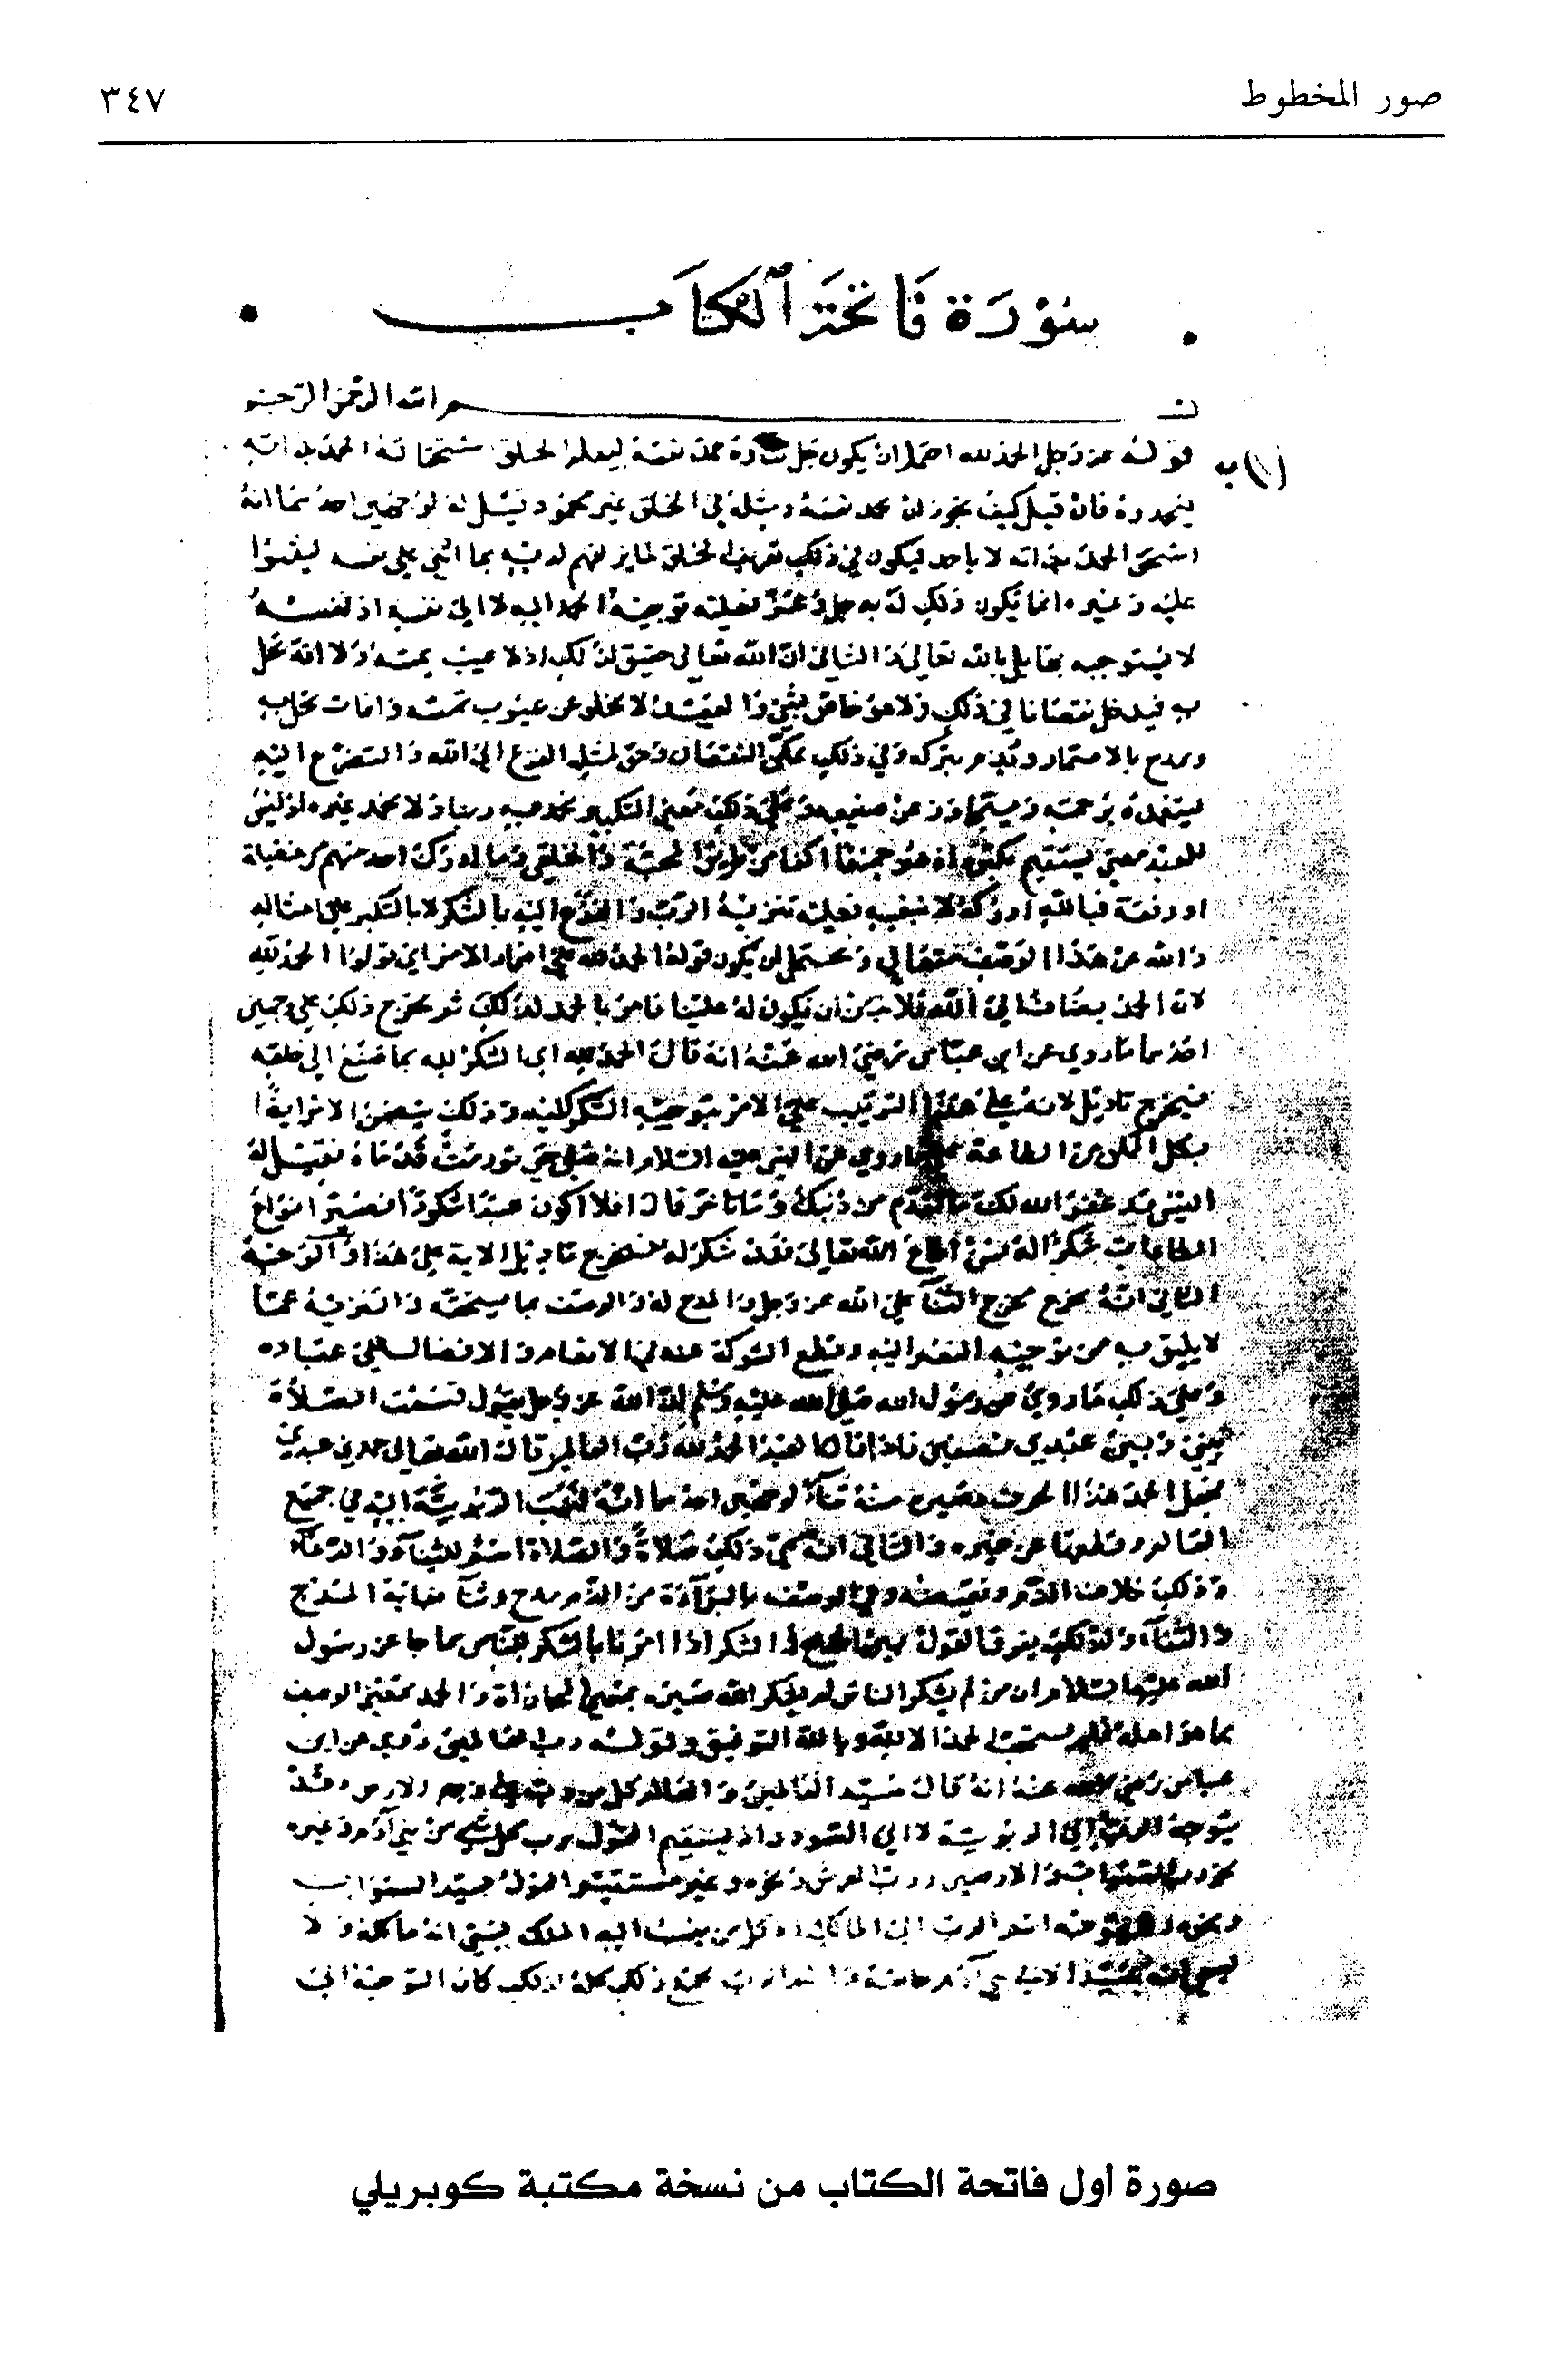 صور المخطوط
٣٤٧
سورة فاتحة الكتاب
بسم الله الرحمن الرحيم
(١) ب
قوله عز وجل الحمد لله احتمل ان يكون جل ثناؤه حمد نفسه ليعلم الخلق استحقاقه الحمد بذاته
فيحمدوه فان قيل كيف يجوز ان يحمد نفسه ومثله في الخلق غير محمود قيل له لوجهين احدهما انه
استحق الحمد بذاته لا باحد ليكون في ذلك تعريف الخلق لما يزلفهم لديه بما اثنى على نفسه ليثنوا
عليه وغيره انما يكون ذلك له به جل وعز فعليه توجيه الحمد اليه لا الى نفسه اذ نفسه
لا يستوجبه بها بل بالله تعالى والثاني ان الله تعالى حقيق لذلك اذ لا عيب يمسه ولا آفة تحل
به فيدخل نقصانا في ذلك ولا هو خاص بشيء والعبد لا يخلو عن عيوب تمسه وآفات تحل به
ويمدح بالائتمار ويذم بتركه وفي ذلك تمكن النقصان وحق لمثله الفزع الى الله والتضرع اليه
ليتغمده برحمته ويتجاوز عن صنيعه وعلى ذلك معنى التكبر نحمد به ربنا ولا نحمد غيره اذ ليس
للعبد معنى يستقيم تكبره اذ هو جميعا اكفاء من طريق المحبة والخلقة وما لهم درك احد منهم من فضيلة
او رفعة فبالله ادركه لا بنفسه فعليه تنزيه الرب والفزع اليه بالشكر لا بالتكبر على امثاله
والله عن هذا الوصف متعالي ويحتمل ان يكون قوله الحمد لله على اضمار الامر اي قولوا الحمد لله
لان الحمد يضاف الى الله فلا بد من ان يكون له علينا فامر بالحمد لذلك ثم يخرج ذلك على وجهين
احدهما ما روي عن ابن عباس رضي الله عنه انه قال الحمد لله اي الشكر لله بما صنع الى خلقه
فيخرج تاويل الآية على هذا الترتيب على الامر بتوجيه الشكر اليه وذلك يتضمن الامر ايضا
بكل الممكن من الطاعة على ما روي عن النبي عليه السلام انه صلى حتى تورمت قدماه فقيل له
اليس قد غفر الله لك ما تقدم من ذنبك وما تاخر قال افلا اكون عبدا شكورا فصير انواع
الطاعات شكرا له فمن اطاع الله تعالى فقد شكر له فيخرج تاويل الآية على هذا والوجه
الثاني انه يخرج مخرج الثناء على الله عز وجل والمدح له والوصف بما يستحقه والتنزيه عما
لا يليق به من توجيه النعم اليه وقطع الشركة عنه في الانعام والافضال على عباده
وعلى ذلك ما روي عن رسول الله صلى الله عليه وسلم ان الله عز وجل يقول قسمت الصلاة
بيني وبين عبدي نصفين فاذا قال العبد الحمد لله رب العالمين قال الله تعالى حمدني عبدي
فجعل الحمد هذا الحرف وصير منه ثناء لوجهين احدهما انه نسب الربوبية اليه في جميع
العالم وقطعها عن غيره والثاني انه سمى ذلك صلاة والصلاة اسم للثناء والدعاء
وذلك خلاف الذم ونقيضه وفي الوصف بالبراءة من الذم مدح وثناء بغاية المدح
والثناء ولذلك يفرق القول بين الحمد والشكر اذا امرنا بالشكر للناس بما جاء عن رسول
الله عليه السلام ان من لم يشكر الناس لم يشكر الله فصيره بمعنى المجازاة والحمد بمعنى الوصف
بما هو اهله فلم يستحب الحمد الا لله وبالله التوفيق وقوله رب العالمين روي عن ابن
عباس رضي الله عنه انه قال سيد العالمين والعالم كل من دب على وجه الارض وقد
يتوجه الرب الى الربوبية لا الى السودد اذ يستقيم القول برب كل شيء من بني آدم وغيره
نحو رب السموات والارضين ورب العرش ونحوه وغير مستقيم القول بسيد السموات
ونحوه وقد يتوجه اسم الرب الى المالك اذ كل من ينسب اليه الملك يسمى انه مالكه ولا
يسمى انه سيده الا في بني آدم خاصة واسم الرب يجمع ذلك كله لذلك كان التوجيه الى
صورة أول فاتحة الكتاب من نسخة مكتبة كوبريلي